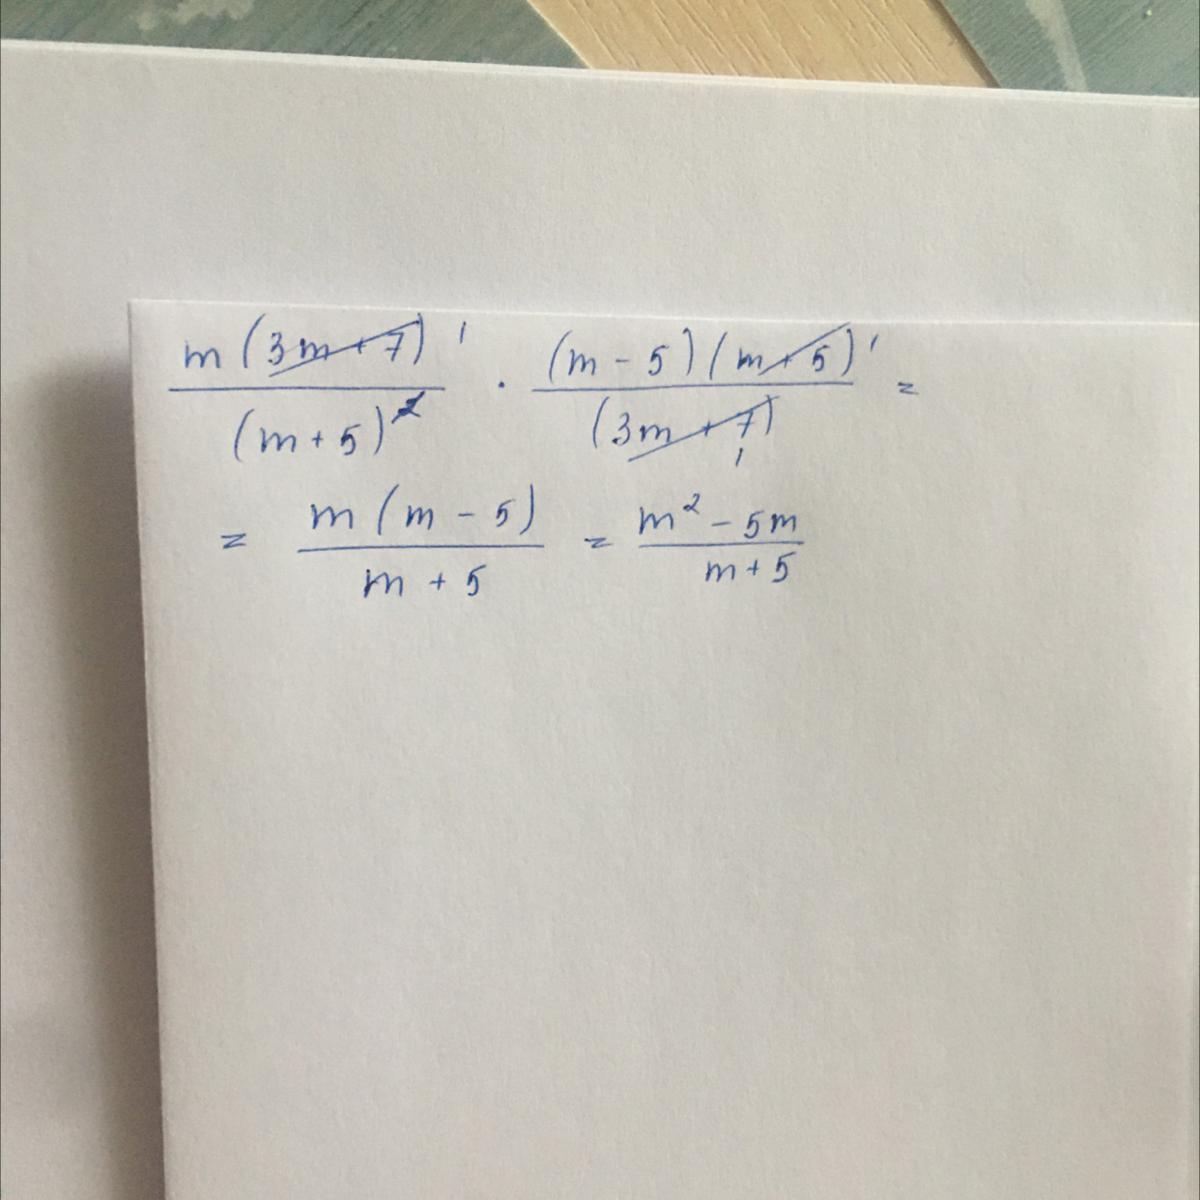 m(3m+7)¹/(m+5)² · (m-5)(m+5)¹/(3m+7)₁ =
= m(m-5)/m+5 = m²-5m/m+5